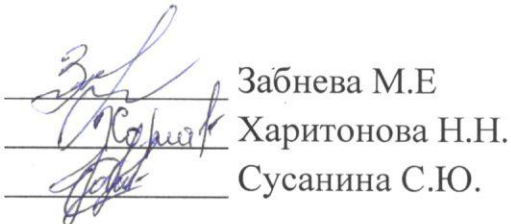 Забнева М.Е
Харитонова Н.Н.
Сусанина С.Ю.